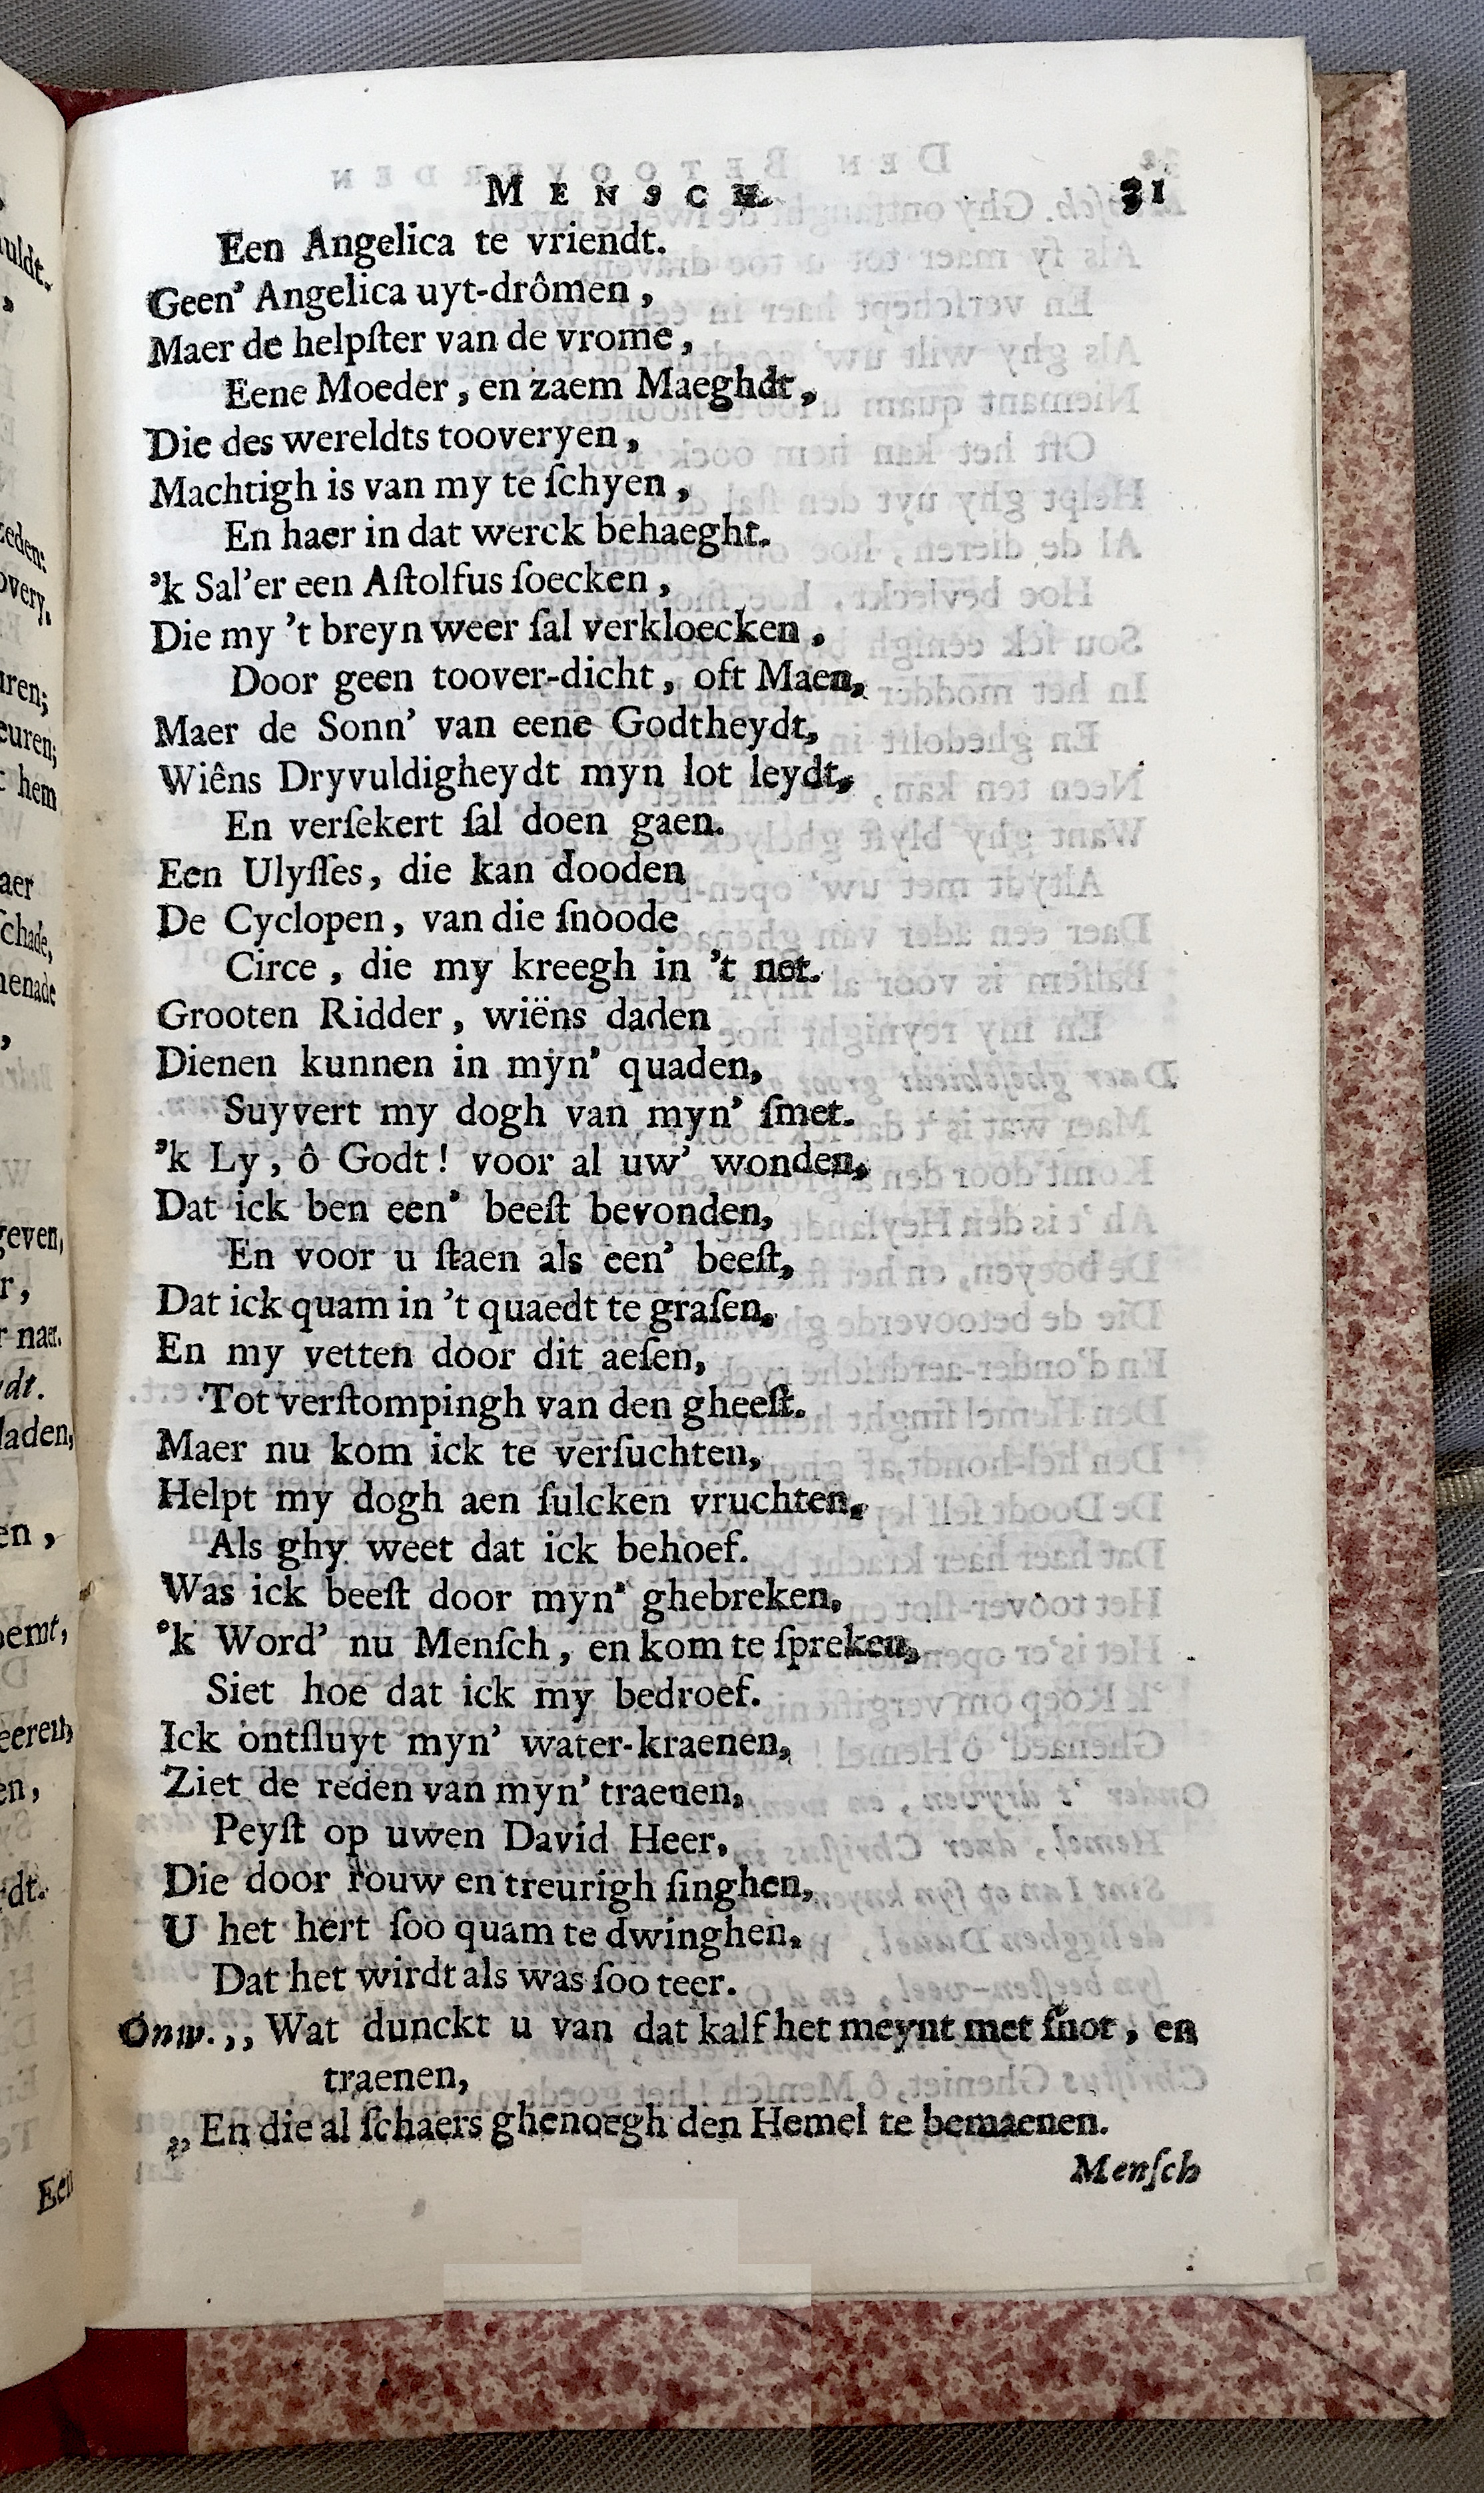 MENSCH. 31
Een Angelica te vriendt.
Geen' Angelica uyt-drômen,
Maer de helpſter van de vrome,
Eene Moeder, en zaem Maeghdt,
Die des wereldts tooveryen,
Machtigh is van my te ſchyen,
En haer in dat werck behaeght.
'k Sal'er een Aſtolfus ſoecken,
Die my 't breyn weer ſal verkloecken,
Door geen toover-dicht, oft Maen,
Maer de Sonn' van eene Godtheydt,
Wiêns Dryvuldigheydt myn lot leydt,
En verſekert ſal doen gaen.
Een Ulyſſes, die kan dooden
De Cyclopen, van die ſnoode
Circe, die my kreegh in 't net.
Grooten Ridder, wiëns daden
Dienen kunnen in myn' quaden,
Suyvert my dogh van myn' ſmet.
'k Ly, ô Godt! voor al uw' wonden,
Dat ick ben een' beeſt bevonden,
En voor u ſtaen als een' beeſt,
Dat ick quam in 't quaedt te graſen,
En my vetten door dit aeſen,
Tot verſtompingh van den gheeſt.
Maer nu kom ick te verſuchten,
Helpt my dogh aen ſulcken vruchten,
Als ghy weet dat ick behoef.
Was ick beeſt door myn' ghebreken,
'k Word' nu Menſch, en kom te ſpreken,
Siet hoe dat ick my bedroef.
Ick ontſluyt myn' water-kraenen,
Ziet de reden van myn' traenen,
Peyſt op uwen David Heer,
Die door rouw en treurigh ſinghen,
U het hert ſoo quam te dwinghen,
Dat het wirdt als was ſoo teer.
Onw.,, Wat dunckt u van dat kalf het meynt met ſnot, en
traenen,
,, En die al ſchaers ghenoegh den Hemel te bemaenen.
Menſch